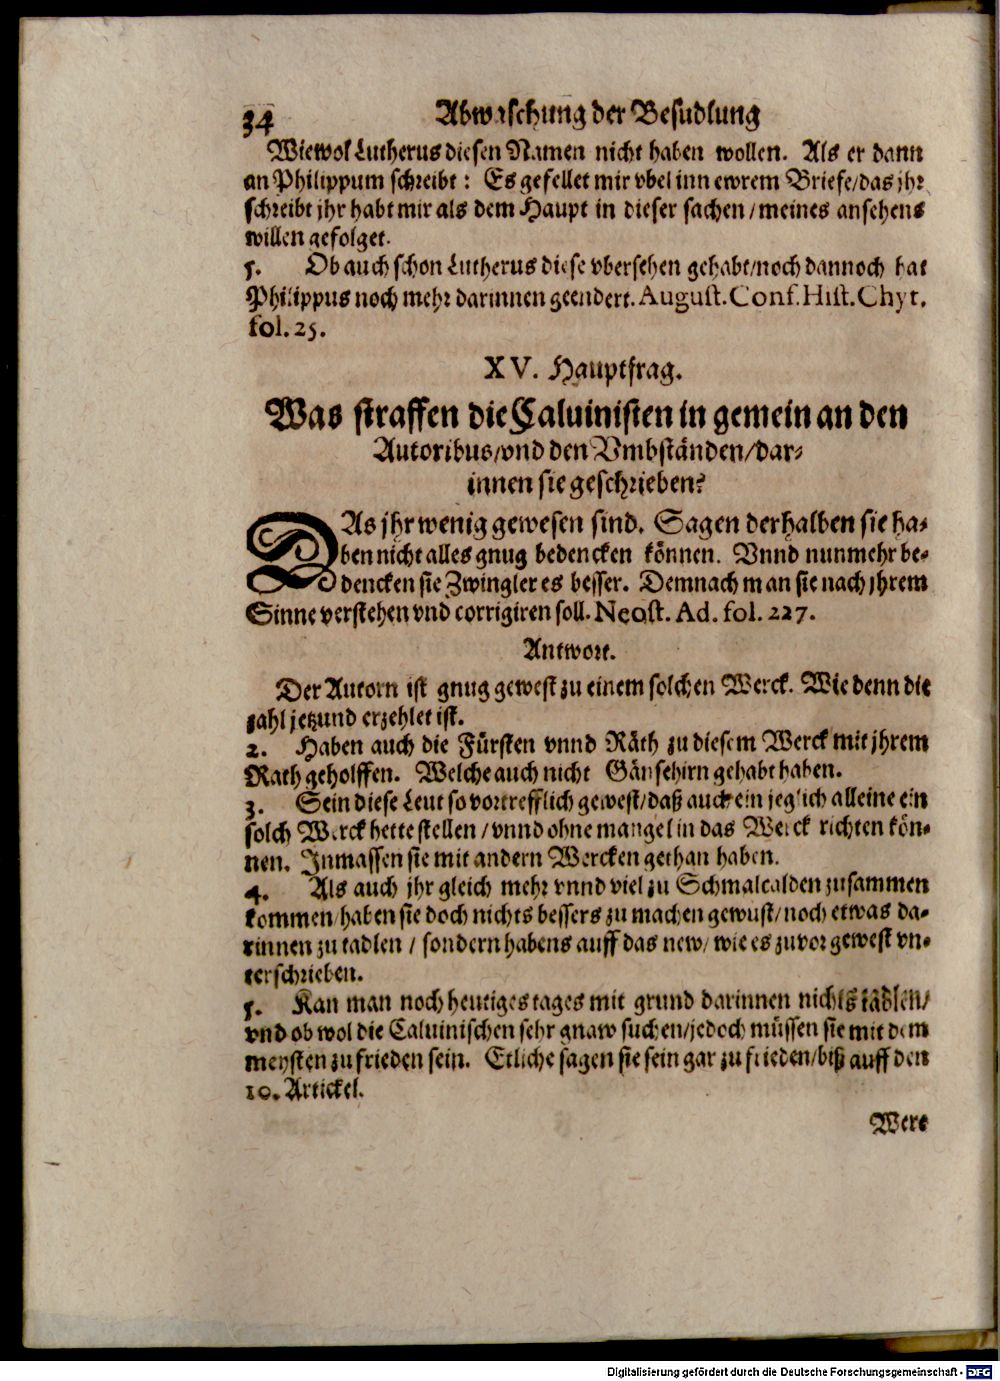 34 Abwaschung der Besudlung
Wiewol Lutherus diesen Namen nicht haben wollen. Als er dann
an Philippum schreibt: Es gefellet mir vbel inn ewrem Briefe/das jhr
schreibt jhr habt mir als dem Haupt in dieser sachen/meines ansehens
willen gefolget.
5. Ob auch schon Lutherus diese vbersehen gehabt/noch dannoch hat
Philippus noch mehr darinnen geendert. August. Conf. Hist. Chyt.
fol. 25.
XV. Hauptfrag.
Was straffen die Caluinisten in gemein an den
Autoribus/vnd den Vmbständen/dar-
innen sie geschrieben?
DAs jhr wenig gewesen sind. Sagen derhalben sie ha-
ben nicht alles gnug bedencken können. Vnnd nunmehr be-
dencken sie Zwingler es besser. Demnach man sie nach jhrem
Sinne verstehen vnd corrigiren soll. Neost. Ad. fol. 227.
Antwort.
Der Autorn ist gnug gewest zu einem solchen Werck. Wie denn die
zahl jetzund erzehlet ist.
2. Haben auch die Fürsten vnnd Räth zu diesem Werck mit jhrem
Rath geholffen. Welche auch nicht Gänsehirn gehabt haben.
3. Sein diese Leut so vortrefflich gewest/daß auch ein jeglich alleine ein
solch Werck hette stellen/vnnd ohne mangel in das Werck richten kön-
nen. Inmassen sie mit andern Wercken gethan haben.
4. Als auch jhr gleich mehr vnnd viel zu Schmalcalden zusammen
kommen/haben sie doch nichts bessers zu machen gewust/noch etwas da-
rinnen zu tadlen/sondern habens auff das new/wie es zuvor gewest vn-
terschrieben.
5. Kan man noch heutiges tages mit grund darinnen nichts tadlen/
vnd ob wol die Caluinischen sehr gnaw suchen/jedoch müssen sie mit dem
meysten zu frieden sein. Etliche sagen sie sein gar zu frieden/biß auff den
10. Artickel.
Were
Digitalisierung gefördert durch die Deutsche Forschungsgemeinschaft - DFG